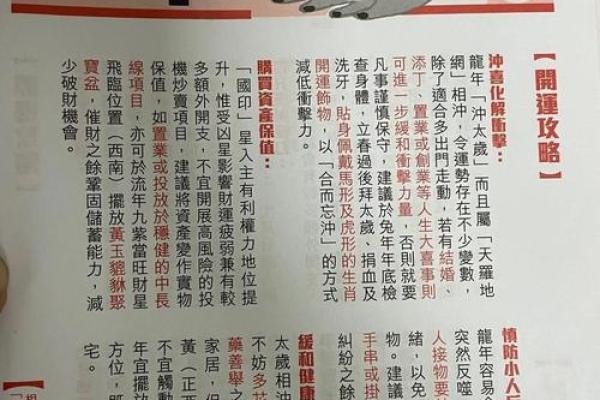 【開運攻略】
沖喜化解衝擊：
龍年「沖太歲」而且屬「天羅地
網」相沖，令運勢存在不少變數，
除了適合多出門走動，若有結婚、
添丁、置業或創業等人生大喜事則
可進一步緩和衝擊力量，否則就要
凡事謹慎保守，建議於兔年年底檢
查身體，立春過後拜太歲、捐血及
洗牙，貼身佩戴馬形及虎形的生肖
開運飾物，以「合而忘沖」的方式
減低衝擊力。
購買資產保值：
「國印」星入主有利權力地位提
升，惟受凶星影響財運疲弱兼有較
多額外開支，不宜開展高風險的投
機炒賣項目，建議將資產變作實物
保值，如置業或投放於穩健的中長
線項目，亦可於流年九紫當旺財星
飛臨位置（西南）擺放黃玉貔貅聚
寶盆，催財之餘鞏固儲蓄能力，減
少破財機會。
慎防小人反
龍年容易
突然反噬
人接物要
緒，以免
物。建議
手串或掛
糾紛之餘
緩和健康
太歲相沖
不妨多花
藥善舉之
家居，但
黃（正西
不宜觸動
年宜擺放
方位，即
宅。
相